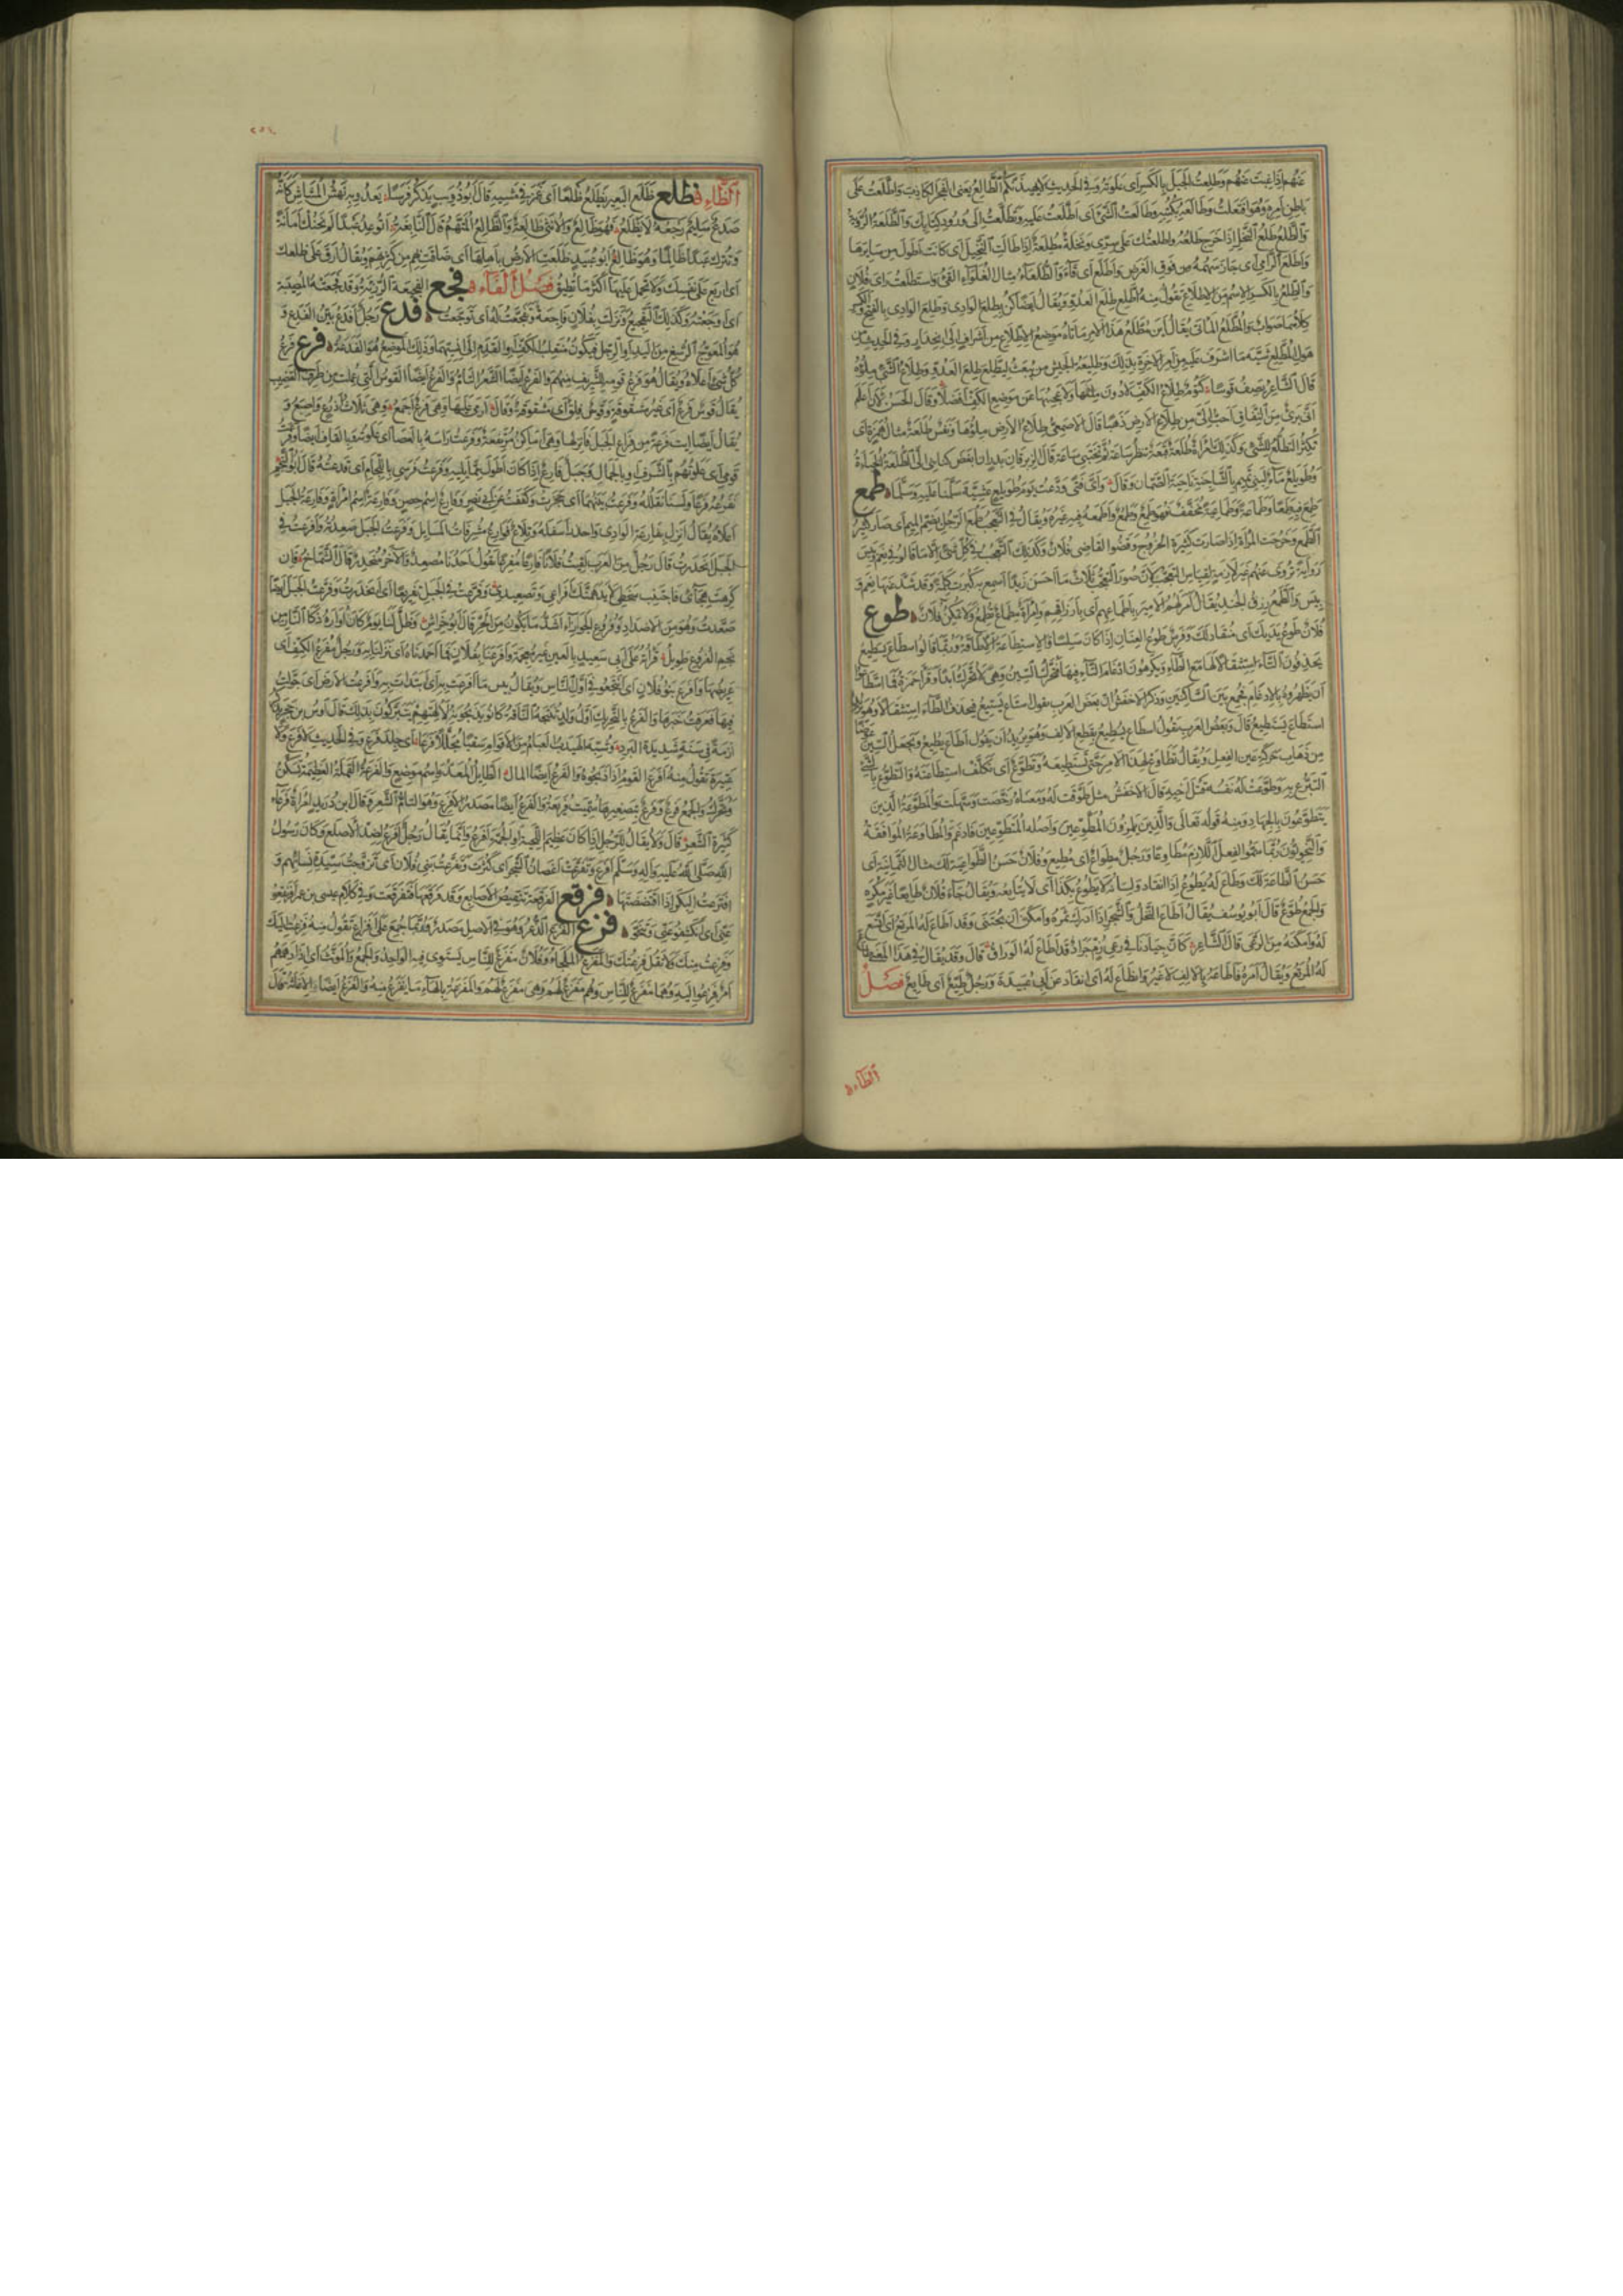 عنهم إذا غبت عنهم وطلعت الجبل بالكسر أي علوته وفي الحديث لا يهيدنكم الطالع يعني الفجر الكاذب واطلعت على
باطن أمره وهو افتعلت وطالعه بكتبه وطالعت الشيء أي اطلعت عليه وتطلعت إلى ورود كتابك والطلعة الرؤية
والطلع طلع النخل إذا خرج طلعه واطلعتك على سري ونخلة مطلعة إذا طالت النخيل أي كانت أطول من سايرها
واطلع الرامي أي جاز سهمه من فوق الغرض واطلع أي قاء والطلعاء مثال الغلواء القيء واستطلعت راى فلان
والطلع بالكسر الاسم من الاطلاع تقول منه اطلع طلع العدو ويقال أيضا كن بطلع الوادي وطلع الوادي بالفتح والكسر
كلاهما صواب والمطلع المأتى يقال أين مطلع هذا الأمر مأتاه وموضع الاطلاع من إشراف إلى انحدار وفي الحديث من
هول المطلع شبه ما أشرف عليه من أمر الآخرة بذلك وطليعة الجيش من يبعث ليطلع طلع العدو وطلاع الشيء ملؤه
قال الشاعر يصف قوسا كتوم طلاع الكف لا دون ملئها ولا عجسها عن موضع الكف أفضلا وقال الحسن لأن أعلم
أني بريء من النفاق أحب إلي من طلاع الأرض ذهبا قال الأصمعي طلاع الأرض ملؤها ونفس طلعة مثال همزة أي
تكثر التطلع للشيء وكذلك امرأة طلعة قبعة تنظر ساعة ثم تختبي ساعة قال الزبرقان بن بدر إن أبغض كنائني إلي الطلعة الخبأة
وطويلع ماء لبني تميم بالشاجنة ناحية الصمان وقال وأي فتى ودعت يوم طويلع عشية سلمنا عليه وسلما طمع
طمع فيه طمعا وطماعة وطماعية مخفف فهو طمع وطمع وأطمعه فيه غيره ويقال في التعجب طمع الرجل بضم الميم أي صار كثير
الطمع وخرجت المرأة إذا صارت كثيرة الخروج وقضو القاضي فلان وكذلك التعجب في كل شيء إلا ما قالوا في نعم وبئس
رواية تروى عنهم غير لازمة لقياس التعجب لأن صور التعجب ثلاث ما أحسن زيدا أسمع به كبرت كلمة وقد شذ عنها نعم و
بئس والطمع رزق الجند يقال أمر لهم الأمير بأطماعهم أي بأرزاقهم وامرأة مطماع تطمع ولا تمكن فلان طوع
فلان طوع يديك أي منقاد لك وفرس طوع العنان إذا كان سلسا والاستطاعة الإطاقة وربما قالوا اسطاع يسطيع
يحذفون التاء استثقالا لها مع الطاء ويكرهون إدغام التاء فيها فتحرك السين وهي لا تحرك أبدا وقرأ حمزة فما اسطاعوا
أن يظهروه بالإدغام فجمع بين الساكنين وذكر الأخفش أن بعض العرب يقول استاع يستيع فيحذف الطاء استثقالا وهو يريد
استطاع يستطيع قال وبعض العرب يقول أسطاع يسطيع بقطع الألف وهو يريد أن يقول أطاع يطيع ويجعل السين عوضا
من ذهاب حركة عين الفعل ويقال تطاوع لهذا الأمر حتى تستطيعه وتطوع أي تكلف استطاعته والتطوع بالشيء
التبرع به وطوعت له نفسه قتل أخيه قال الأخفش مثل طوقت له ومعناه رخصت وسهلت والمطوعة الذين
يتطوعون بالجهاد ومنه قوله تعالى والذين يلمزون المطوعين وأصله المتطوعين فأدغم والمطاوعة الموافقة
والنحويون ربما سموا الفعل اللازم مطاوعا ورجل مطواع أي مطيع وفلان حسن الطواعية لك مثال الثمانية أي
حسن الطاعة لك وطاع له يطوع إذا انقاد ولسانه لا يطوع بكذا أي لا يتابعه ويقال جاء فلان طايعا غير مكره
والجمع طوع قال أبو يوسف يقال أطاع النخل والشجر إذا أدرك ثمره وأمكن أن يجتنى وقد أطاع له المرتع أي اتسع
له وأمكنه من الرعي قال الشاعر كأن جيادنا في رعن زم جراد قد أطاع له الوراق قال وقد يقال في هذا المعنى طاع
له المرتع ويقال أمره فأطاعه بالألف لا غير وانطاع له أي انقاد عن أبي عبيدة ورجل طيع أي طايع فصل
الظاء
الظاء ظلع ظلع البعير يظلع ظلعا أي غمز في مشيه قال أبو ذؤيب يذكر فرسا يعدو به نهش المشاش كأنه
صدع سليم رجعه لا يظلع فهو ظالع والأنثى ظالعة والظالع المتهم قال النابغة أتوعد عبدا لم يخنك أمانة
وتترك عبدا ظالما وهو ظالع أبو عبيد ظلعت الأرض بأهلها أي ضاقت بهم من كثرتهم ويقال ارق على ظلعك
أي اربع على نفسك ولا تحمل عليها أكثر مما تطيق فصل الفاء فجع الفجيعة الرزية وقد فجعته المصيبة
أي أوجعته وكذلك التفجيع ونزلت بفلان فاجعة وتفجعت له أي توجعت فدع رجل أفدع بين الفدع و
هو المعوج الرسغ من اليد أو الرجل فيكون منقلب الكف أو القدم إلى إنسيهما وذلك الموضع هو الفدعة فرع فرع
كل شيء أعلاه ويقال هو فرع قومه للشريف منهم والفرع أيضا الشعر التام والفرع أيضا القوس التي عملت من طرف القضيب
يقال قوس فرع أي غير مشقوقة وقوس فلق أي مشقوقة وقال أرمي عليها وهي فرع أجمع وهي ثلاث أذرع وإصبع و
يقال أيضا ايت فرعة من فراع الجبل فانزلها وهي أماكن مرتفعة وفرعت رأسه بالعصا أي علوته وبالقاف أيضا وفرعت
قومي أي علوتهم بالشرف أو بالجمال وجبل فارع إذا كان أطول مما يليه وفرعت فرسي باللجام أي قدعته قال أبو النجم
نفرعه فرعا ولسنا نعتله وفرعت بينهما أي حجزت وكففت وفارع اسم حصن وفارعة اسم امرأة وفارعة الجبل
أعلاه يقال انزل بفارعة الوادي واحذر أسفله وتلاع فوارع مشرفات المسايل وفرعت الجبل صعدته وأفرعت في
الجبل انحدرت قال رجل من العرب لقيت فلانا فارعا مفرعا يقول أحدنا مصعد والآخر منحدر قال الشماخ فإن
كرهت هجائي فاجتنب سخطي لا يدهمنك إفراعي وتصعيدي وفرعت في الجبل تفريعا أي انحدرت وفرعت الجبل أيضا
صعدت وهو من الأضداد وفروع الجوزاء أشد ما يكون من الحر قال أبو خراش وظل لنا يوم كأن أواره ذكا النار من
نجم الفروغ طويل قرأته على أبي سعيد بالعين غير معجمة وأفرعنا بفلان فما أحمدناه أي نزلنا به ورجل مفرع الكتف أي
عريضها وأفرع بنو فلان أي انتجعوا في أول الناس ويقال بئس ما أفرعت به أي ابتدأت به وأفرعت الأرض أي جولت
فيها فعرفت خبرها والفرع بالتحريك أول ولد تنتجه الناقة كانوا يذبحونه لآلهتهم يتبركون بذلك قال أوس بن حجر يذكر
أزمة في سنة شديدة البرد وشبه الهيدب العبام من الأقوام سقبا مجللا فرعا أي جلد فرع وفي الحديث لا فرع ولا
عتيرة تقول منه أفرع القوم إذا ذبحوه والفرع أيضا المال الطايل المعد واسم موضع والفرعة القملة العظيمة تسكن
وتحرك والجمع فرع وفرع بتصغيرها سميت فريعة والفرع أيضا مصدر الأفرع وهو التام الشعر وقال ابن دريد امرأة فرعاء
كثيرة الشعر قال ولا يقال للرجل إذا كان عظيم اللحية أو الجمة أفرع وإنما يقال رجل أفرع لضد الأصلع وكان رسول
الله صلى الله عليه وآله وسلم أفرع وتفرعت أغصان الشجر أي كثرت وتفرعت بني فلان أي تزوجت سيدة نسائهم و
افترعت البكر إذا اقتضضتها فرقع الفرقعة تنقيض الأصابع وقد فرقعها فتفرقعت وفي كلام عيسى بن عمر افرنقعوا
عني أي انكشفوا عني وتنحوا فزع الفزع الذعر وهو في الأصل مصدر وربما جمع على أفزاع تقول منه فزعت إليك
وفزعت منك ولا تقل فزعتك والمفزع الملجأ وفلان مفزع للناس يستوي فيه الواحد والجمع والمؤنث أي إذا دهمهم
أمر فزعوا إليه وهما مفزع للناس وهم مفزع لهم وهي مفزع لهم والمفزعة بالهاء ما يفزع منه والفزع أيضا الإغاثة قال